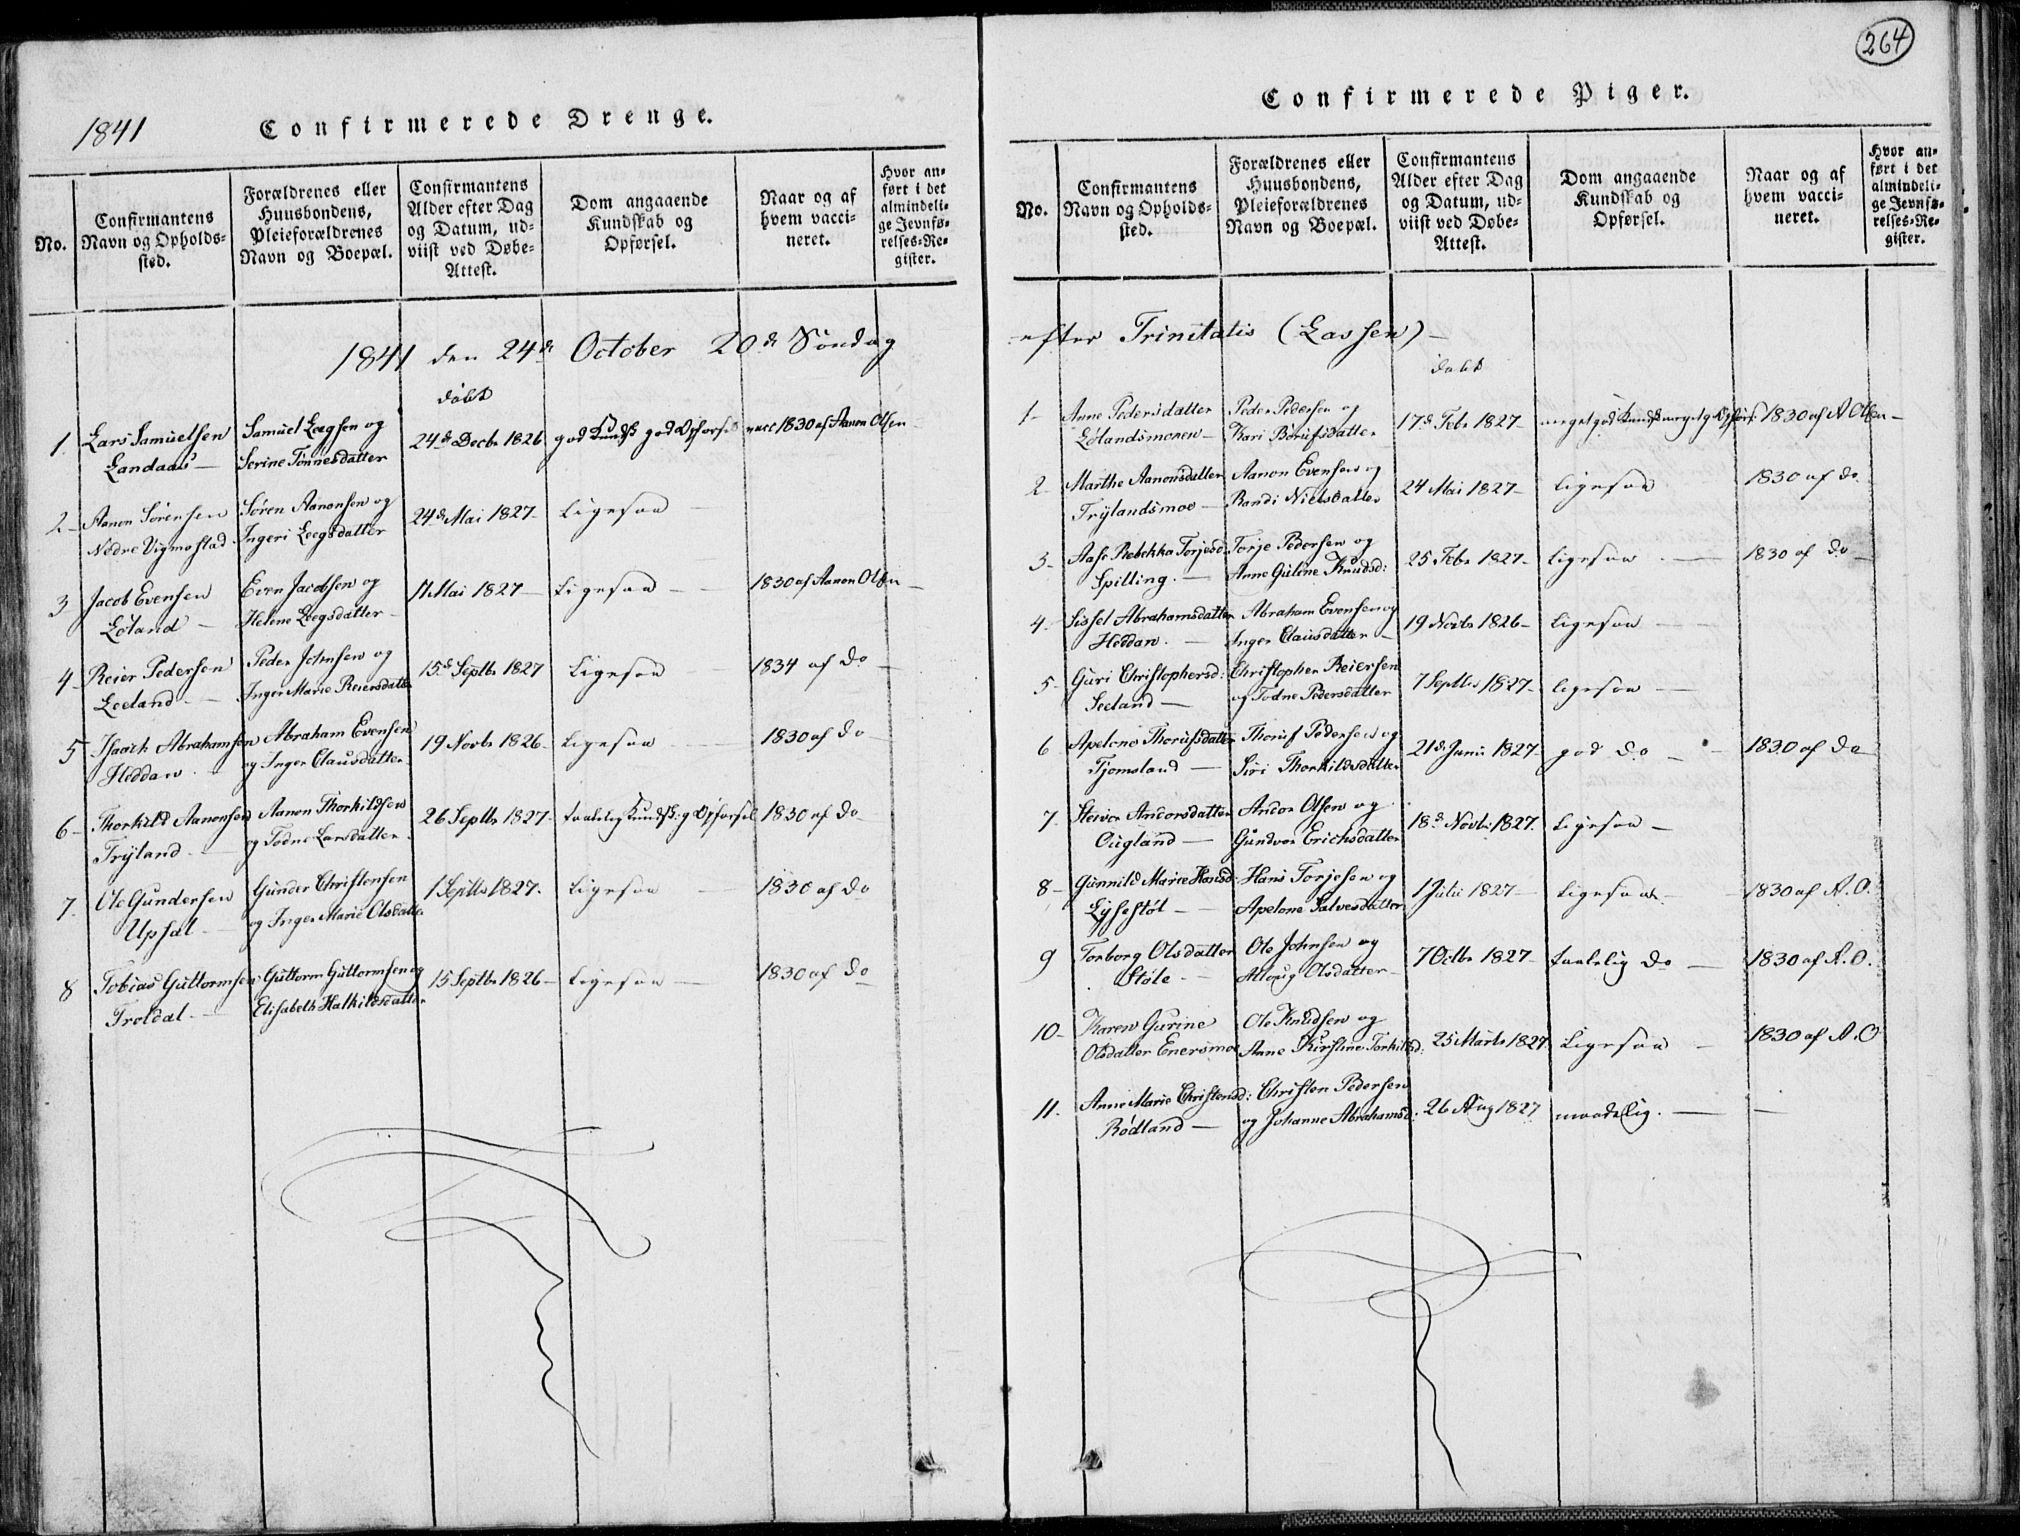 1841
Confirmerede Drenge.
No.
Confirmantens Navn og Opholds-sted.
Forældrenes eller Huusbondens, Pleieforældrenes Navn og Boepæl.
Confirmantens Alder efter Dag og Datum, ud-viist ved Døbe-Attest.
Dom angaaende Kundskab og Opførsel.
Naar og af hvem vacci-neret.
Hvor an-ført i det almindeli-ge Jevnfø-relses-Re-gister.
1841 den 24de October 20de Søndag
døbt
1. Lars Samuelsen Samuel Leegsen og 24de Decbr 1826 god Kundsk god Opførsel vacc 1830 af Aanon Olsen
Landaas Serine Tønnesdatter
2 Aanon Sørensen Søren Aanonsen og 24de Mai 1827 Ligesaa
Nedre Vigmostad Ingeri Leegsdatter
3 Jacob Evensen Even Jacobsen og 17 Mai 1827 Ligesaa 1830 af Aanon Olsen
Løland Helene Leegsdatter
4 Reier Pedersen Peder Johnsen og 15de Septbr 1827 Ligesaa 1834 af do
Leeland Inger Marie Reiersdatter
5 Isaach Abrahamsen Abraham Evensen 19 Novbr 1826 Ligesaa 1830 af do
Heddan og Inger Clausdatter
6 Thorkild Aanonsen Aanon Thorkildsen 26 Septbr 1827 taalelig Kundsk: g Opførsel 1830 af do
Trýland og Todne Larsdatter
7. Ole Gundersen Gunder Christensen 1 Septbr 1827. Ligesaa 1830 af do
Upsal og Inger Marie Olsdatter
8 Tobias Guttormsen Guttorm Guttormsen og 15 Septbr 1826 Ligesaa 1830 af do
Troldal Elisabeth Halkildsdatter
264
Confirmerede Piger.
No.
Confirmantens Navn og Opholds-sted.
Forældrenes eller Huusbondens, Pleieforældrenes Navn og Boepæl.
Confirmantens Alder efter Dag og Datum, ud-viist ved Døbe-Attest.
Dom angaaende Kundskab og Opførsel.
Naar og af hvem vacci-neret.
Hvor an-ført i det almindeli-ge Jevnfø-relses-Re-gister.
efter Trinitatis (Lassen)
døbt
1 Anne Pedersdatter Peder Pedersen og 17de Febr 1827 meget god Kundsk meget g Opførs 1830 af A Olsen
Lølandsmonen Kari
2 Marthe Aanonsdatter Aanon Evensen og 24 Mai 1827 Ligesaa 1830 af do
Trýlandsmoe Randi Nielsdatter
3 Aase Rebekka Torjesd: Torje Pedersen og 25 Febr 1827 ligesaa 1830 af do
Spilling. Anne Guline Knudsd:
4 Sissel Abrahamsdatter Abraham Evensen og 19 Novbr 1826 ligesaa
Heddan. Inger Clausdatter
5 Guri Christophersd: Christopher Reiersen 7 Septbr 1827 ligesaa
Seeland og Todne Pedersdatter
6 Apelone Thorufsdatter Thoruf Pedersen og 21de Juni 1827 god do 1830 af do
Tjomsland Siri Thorkildsdatter
7. Steivor Andorsdatter Andor Olsen og 18de Novbr 1827. Ligesaa
Øugland Gundvor Erichsdatter
8 Gunnild Marie Hansd: Hans Torjesen og 1 Julii 1827 Ligesaa 1830 af A. O.
Lýsestøl Apelone Salvesdatter
9 Torborg Olsdatter Ole Johnsen og 7 Octbr 1827 taalelig do 1830 af A. O.
Støle Olsdatter
10 Karen Gurine Ole Knudsen og 25 Marts 1827 Ligesaa 1830 af A. O
Olsdatter Enersmoe Anne Kirstine Torkilsd:
11. Anne Marie Christensd: Christen Pedersen 26 Aug 1827 maadelig.
Rødland og Johanne Abrahamsd.